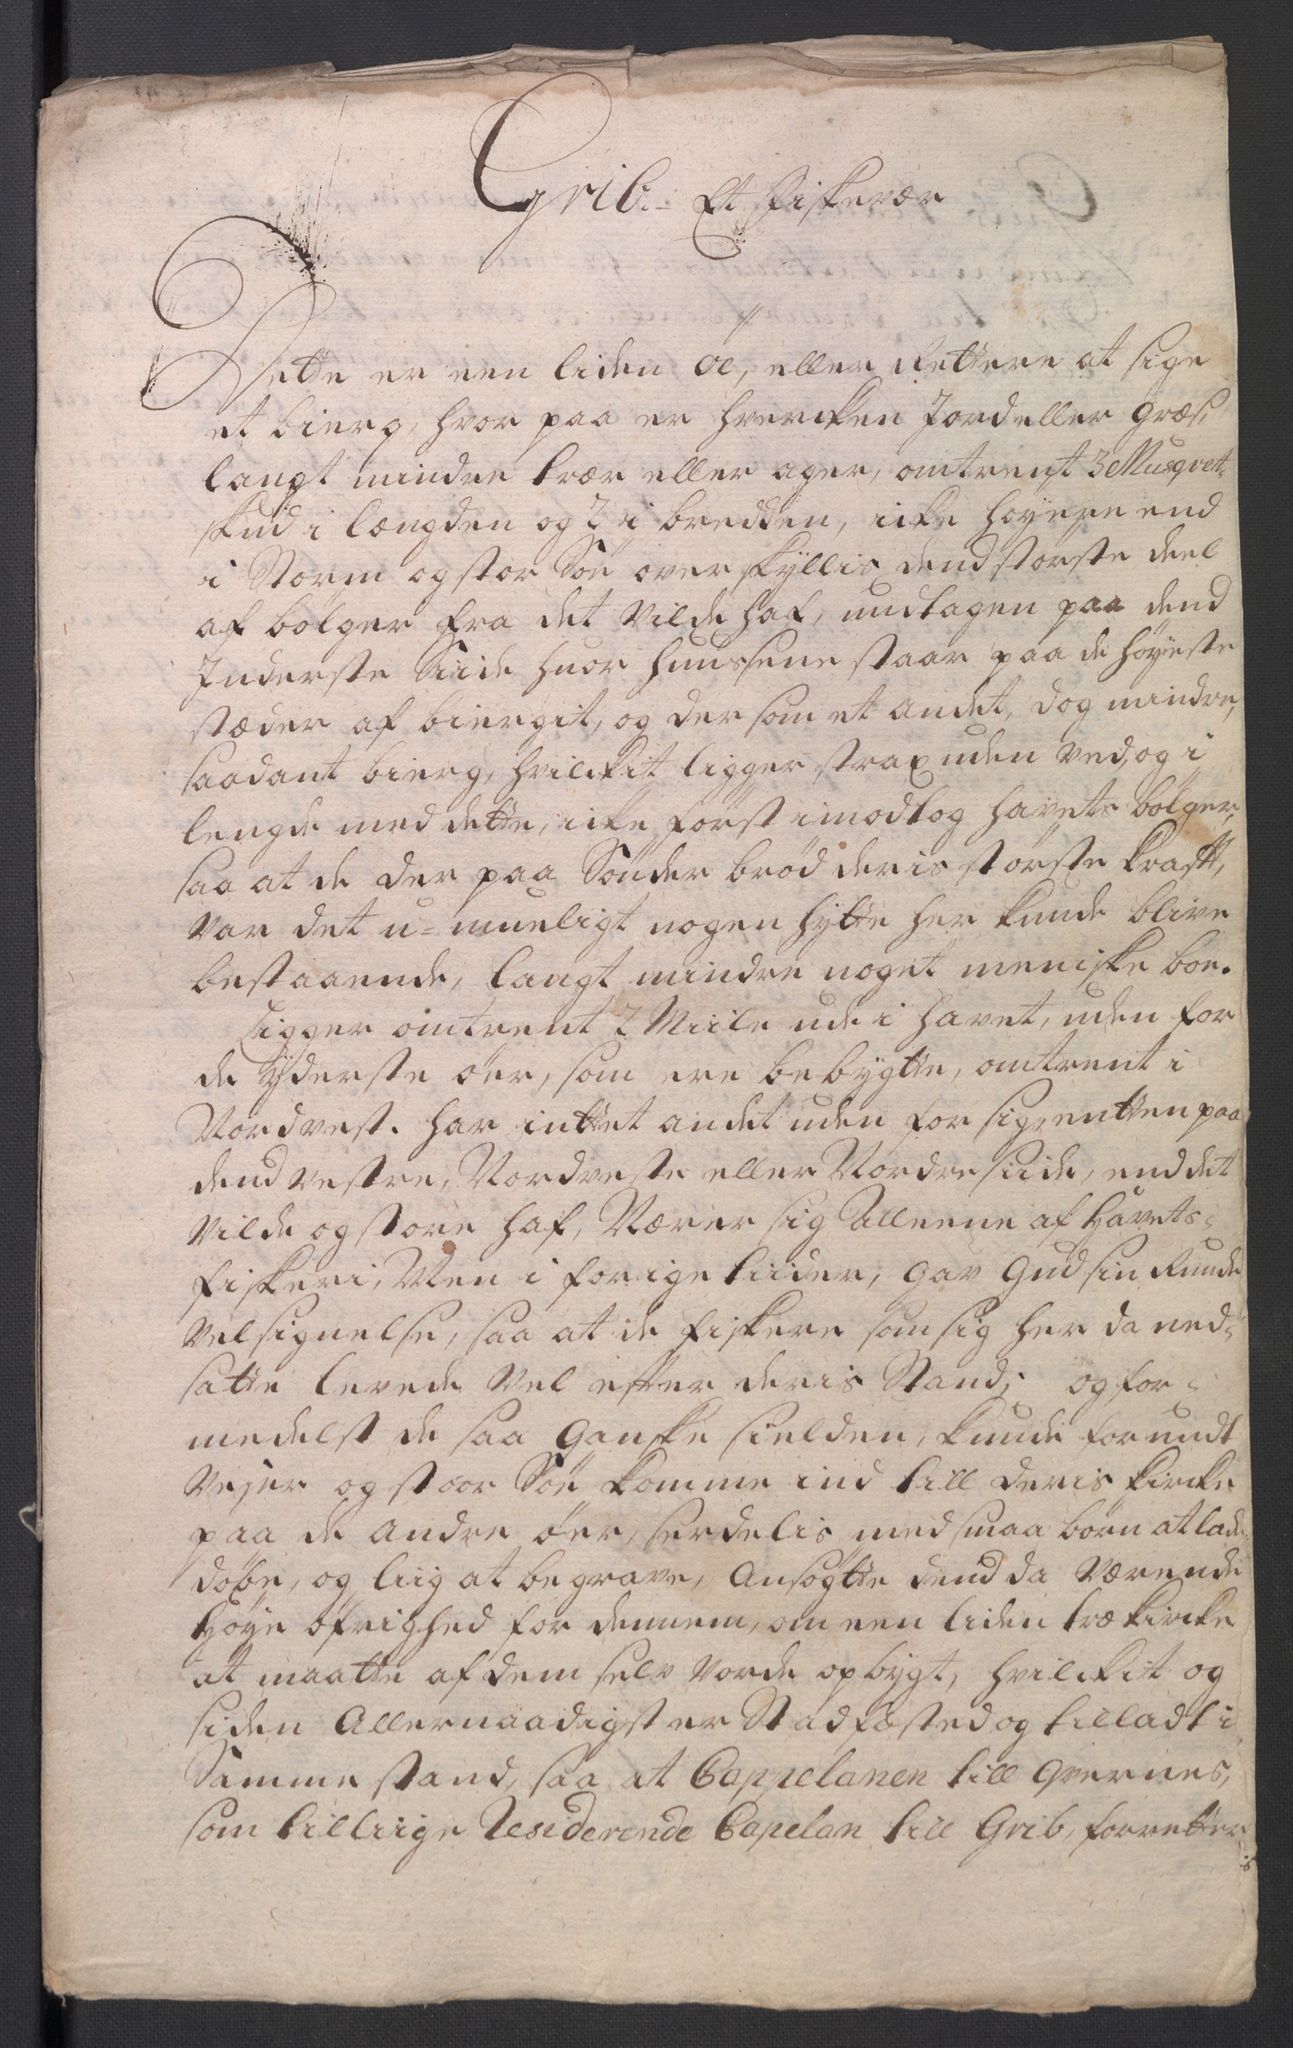 Grib. Et Fiskevær
Dette er een liden Øe, eller Rettere at sige
et bierg, hvor paa er hvercken Jord eller græs,
langt mindre trær eller ager, omtrent 3 Musqvet-
skud i længden og 2 i bredden, icke høyere end
i Storm og stor Søe over skyllis dend største deel
af bølger fra det Vilde haf, undtagen paa dend
Inderste Side huor huussene staar paa de høyeste
stæder af biergit, og der som et andet, dog mindre,
saadant bierg, hvilckit ligger strax uden ved, og i
lengde med dette, icke først imodtog havets bølger,
saa at de der paa Sønder brød deris største krafft,
Var det u-mueligt nogen hytte her kunde blive
bestaaende, langt mindre noget meniske boe.
Ligger omtrent 2 Miile ude i havet, uden for
de yderste øer, som ere bebygtte, omtrent i
Nordvest. har inttet andet uden for sig, entten paa
dend Vestre, Nordveste eller Nordre Siide, end det
Vilde og store haf, Nærer sig Alleene af Havets-
fiskeri, Men i forige tiider, gav Gud sin Runde
Velsignelse, saa at de fiskere som sig her da ned-
satte levede Vel effter deris Stand; og for-
medelst de saa ganske sielden, kunde for undt
Vejer og stoor Søe komme ind till deris kircke
paa de andre øer, serdelis med smaa børn at lade
døbe, og liig at begrave, Ansøgtte dend da Værende
Høye øfrighed for dennem, om een liden træ kircke
at maatte af dem selv Vorde opbygt, hvilckit og
siden Allernaadigst er Stadfæsted og tilladt i
Samme stand, saa at Cappelanen till Qvernes,
som tilliige Residerende Capelan till Grib, forretter